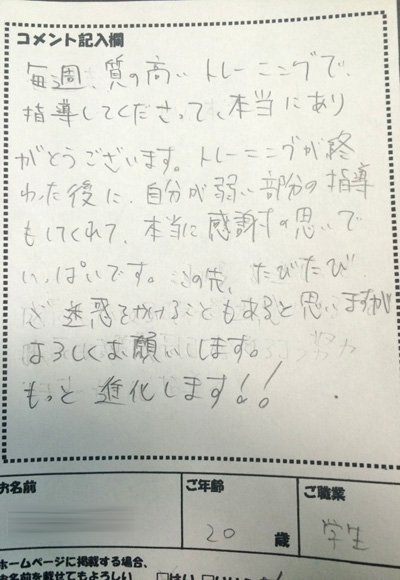 コメント記入欄
毎週、質の高い トレーニングで、
指導してくださって、本当にあり
がとうございます。トレーニングが終
わった後に、自分が弱い部分の指導
もしてくれて、本当に感謝の思いで
いっぱいです。この先、たびたび
ご迷惑をかけることもあると思いますが
よろしくお願いします。
もっと進化します!!
お名前
ご年齢
ご職業
20 歳
学生
ホームページに掲載する場合、
お名前を載せてもよろしい
□はい □